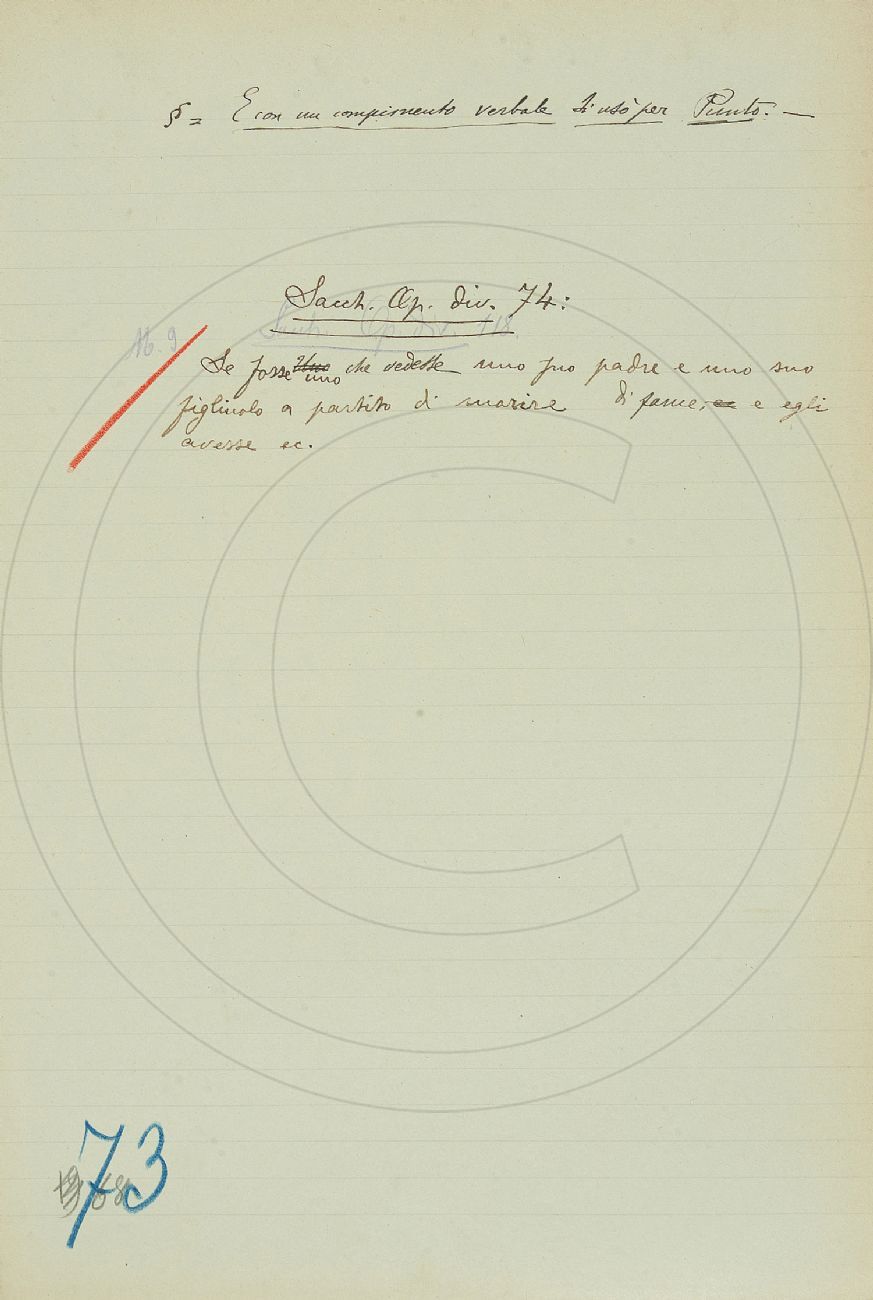 § = E con un compimento verbale si usò per Punto. —
Sacch. Op. div. 74:
Sacch. Op. div. 118
16. 9
Se fosse uno che vedesse uno suo padre e uno suo
figliuolo a partito di morire di fame, e egli
avesse ec.
73